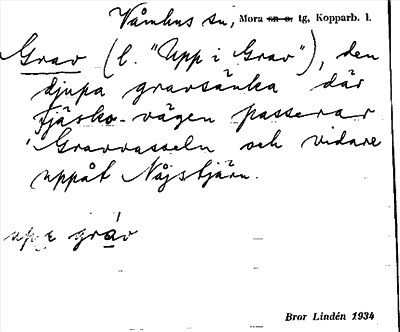 Våmhus sn, Mora sn o. tg, Kopparb. l.
Grav (l. "Upp i Grav"), den
djupa gravsänka där
Fjäsko-vägen passerar
Gravvasseln och vidare
uppåt Nåjstjärn.
up i grav
Bror Lindén 1934